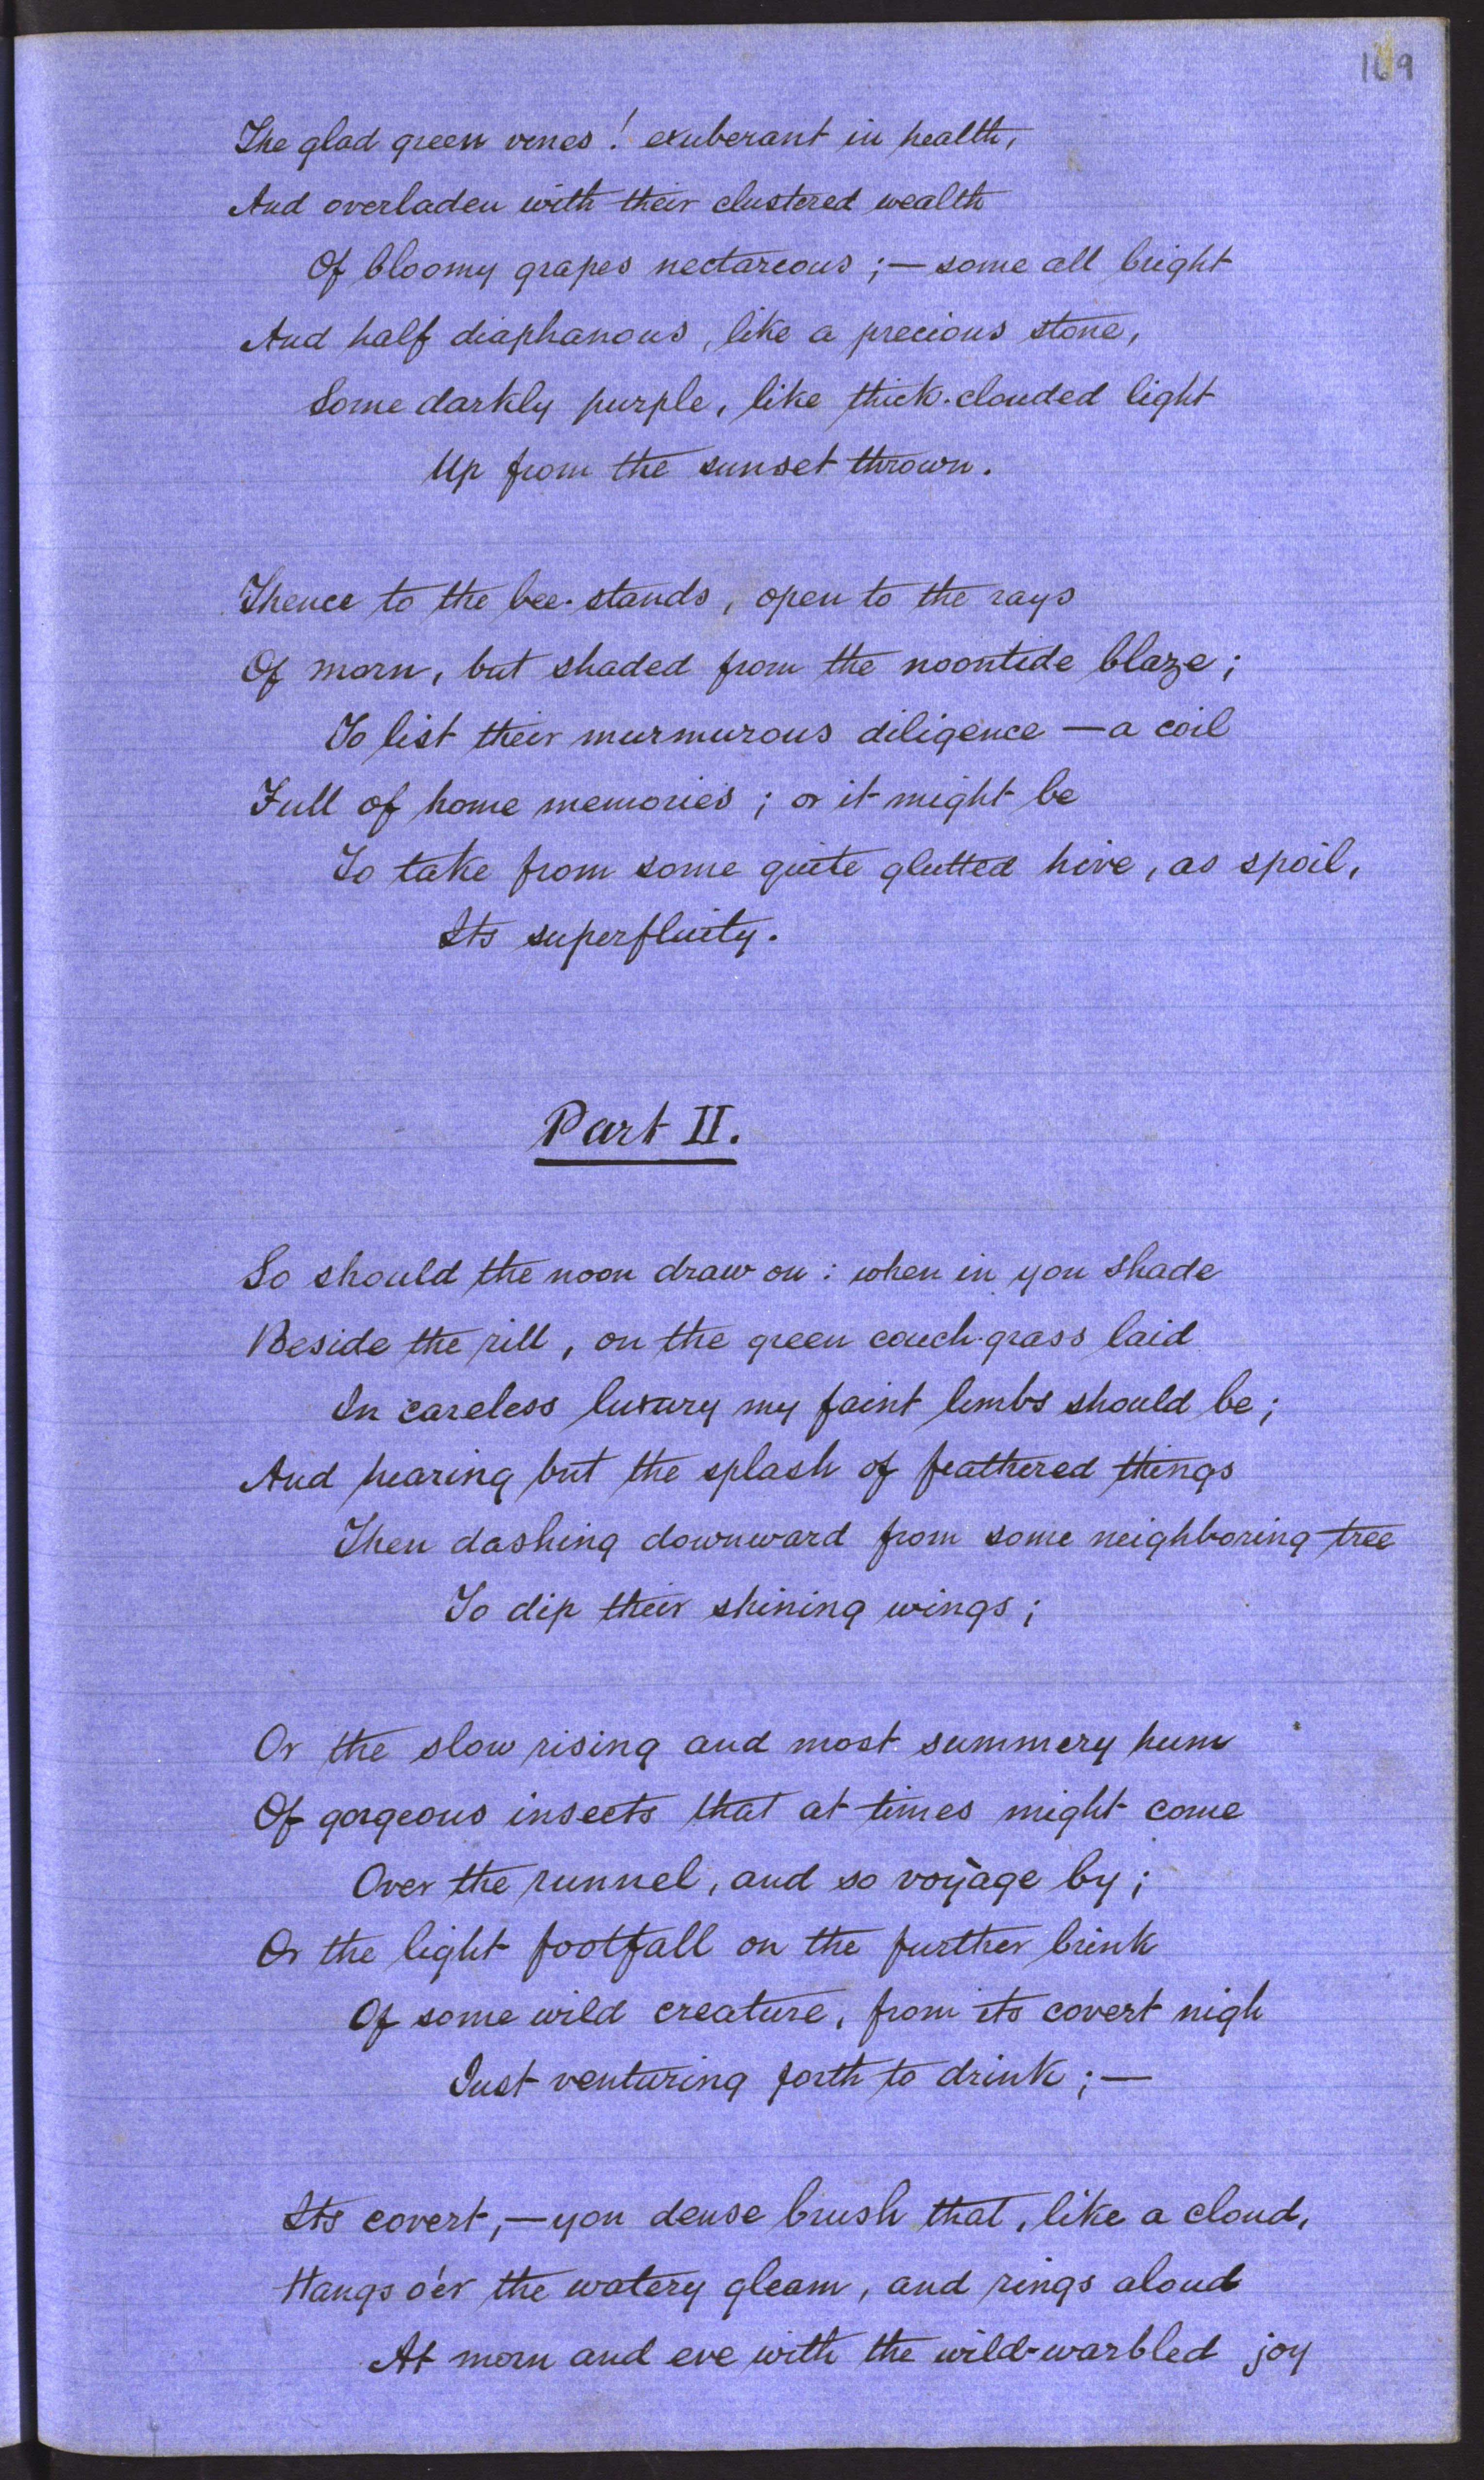 169
The glad green vines! exuberant in health,
And overladen with their clustered wealth
Of bloomy grapes nectareous;—some all bright
And half diaphanous, like a precious stone,
Some darkly purple, like thick-clouded light
Up from the sunset thrown.
Thence to the bee-stands, open to the rays
Of morn, but shaded from the noontide blaze;
To list their murmurous diligence—a coil
Full of home memories; or it might be
To take from some quite glutted hive, as spoil,
Its superfluity.
Part II.
So should the noon draw on: when in yon shade
Beside the rill, on the green couch-grass laid
In careless luxury my faint limbs should be;
And hearing but the splash of feathered things
Then dashing downward from some neighboring tree
To dip their shining wings;
Or the slow rising and most summery hum
Of gorgeous insects that at times might come
Over the runnel, and so voyage by;
Or the light footfall on the further brink
Of some wild creature, from its covert nigh
Just venturing forth to drink;—
Its covert,—yon dense brush that, like a cloud,
Hangs o'er the watery gleam, and rings aloud
At morn and eve with the wild-warbled joy